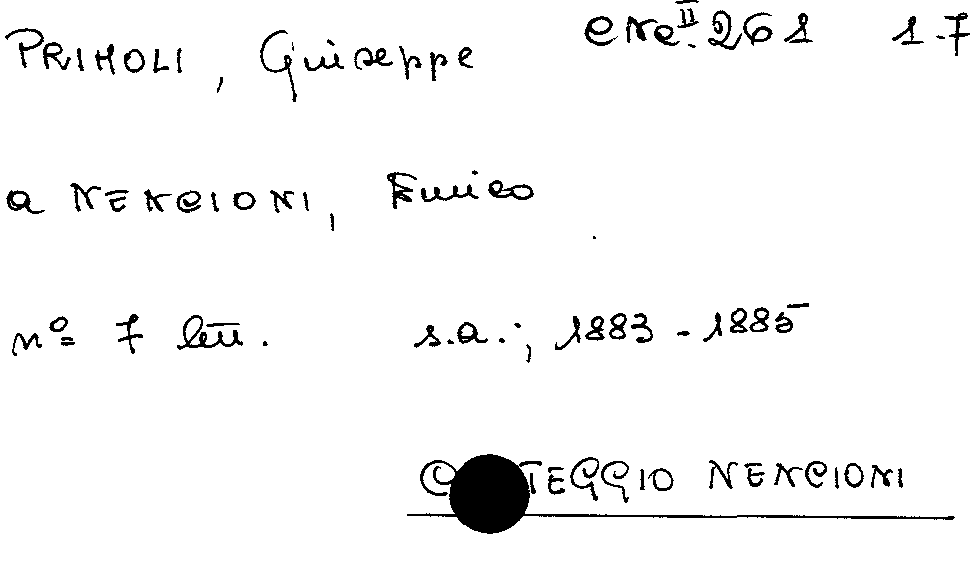 PRIMOLI, Giuseppe CNC.II 261 1-7
a NENCIONI, Enrico
nº 7 lett. s.a.; 1883-1885
C TEGGIO NENCIONI